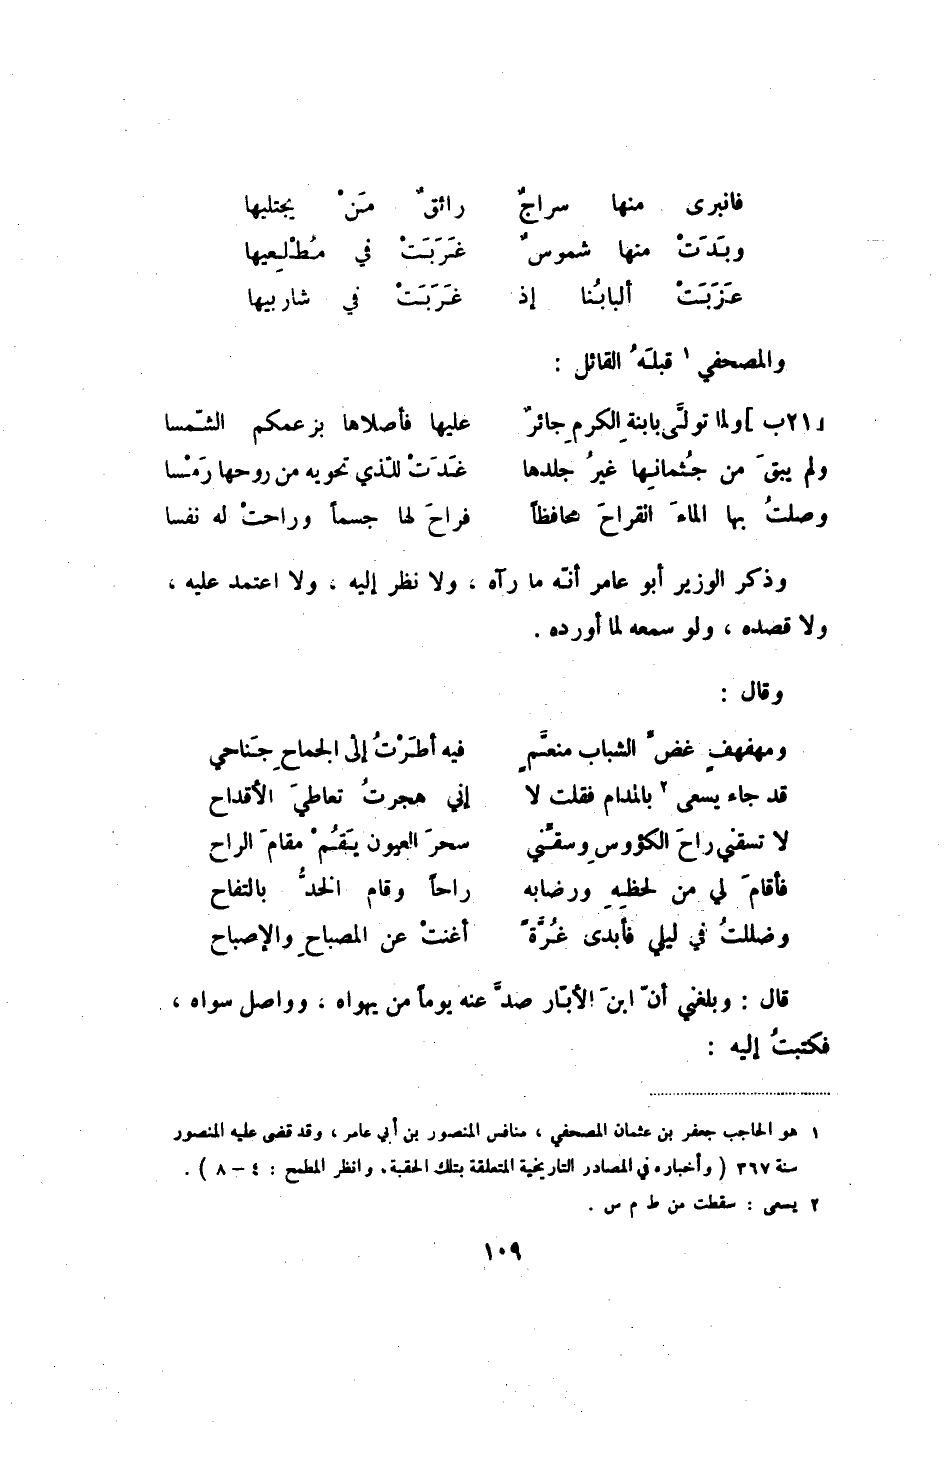 فانبرى منها سراجٌ رائقٌ مَنْ يجتليها
وبَدَتْ منها شموسٌ غَرَبَتْ في مُطْلِعيها
عَزَبَتْ ألبابُنا إذ غَرَبَتْ في شاربيها
والمصحفي ١ قبلَهُ القائل :
[٢١ب] ولما تولَّى بابنةِ الكرمِ جائرٌ عليها فأصلاها بزعمكم الشّمسا
ولم يبقَ من جُثمانِها غيرُ جلدها غَدَتْ للّذي تحويه من روحها رَمْسا
وصلتُ بها الماءَ القراحَ محافظاً فراحَ لها جسماً وراحتْ له نفسا
وذكر الوزير أبو عامر أنّه ما رآه ، ولا نظر إليه ، ولا اعتمد عليه ،
ولا قصده ، ولو سمعه لما أورده .
وقال :
ومهفهفٍ غضِّ الشباب منعَّمٍ فيه أطَرْتُ إلى الجماحِ جَناحي
قد جاء يسعى ٢ بالمدام فقلت لا إني هجرتُ تعاطيَ الأقداح
لا تسقني راحَ الكؤوسِ وسقِّني سحرَ العيون يَقُمْ مقامَ الراح
فأقامَ لي من لحظِهِ ورضابه راحاً وقام الخدُّ بالتفاح
وضللتُ في ليلي فأبدى غُرَّةً أغنتْ عن المصباحِ والإصباح
قال : وبلغني أنّ ابنَ الأبّار صدَّ عنه يوماً من يهواه ، وواصل سواه ،
فكتبتُ إليه :
١ هو الحاجب جعفر بن عثمان المصحفي ، منافس المنصور بن أبي عامر ، وقد قضى عليه المنصور
سنة ٣٦٧ ( وأخباره في المصادر التاريخية المتعلقة بتلك الحقبة، وانظر المطمح : ٤ – ٨ ) .
٢ يسعى : سقطت من ط م س .
١٠٩